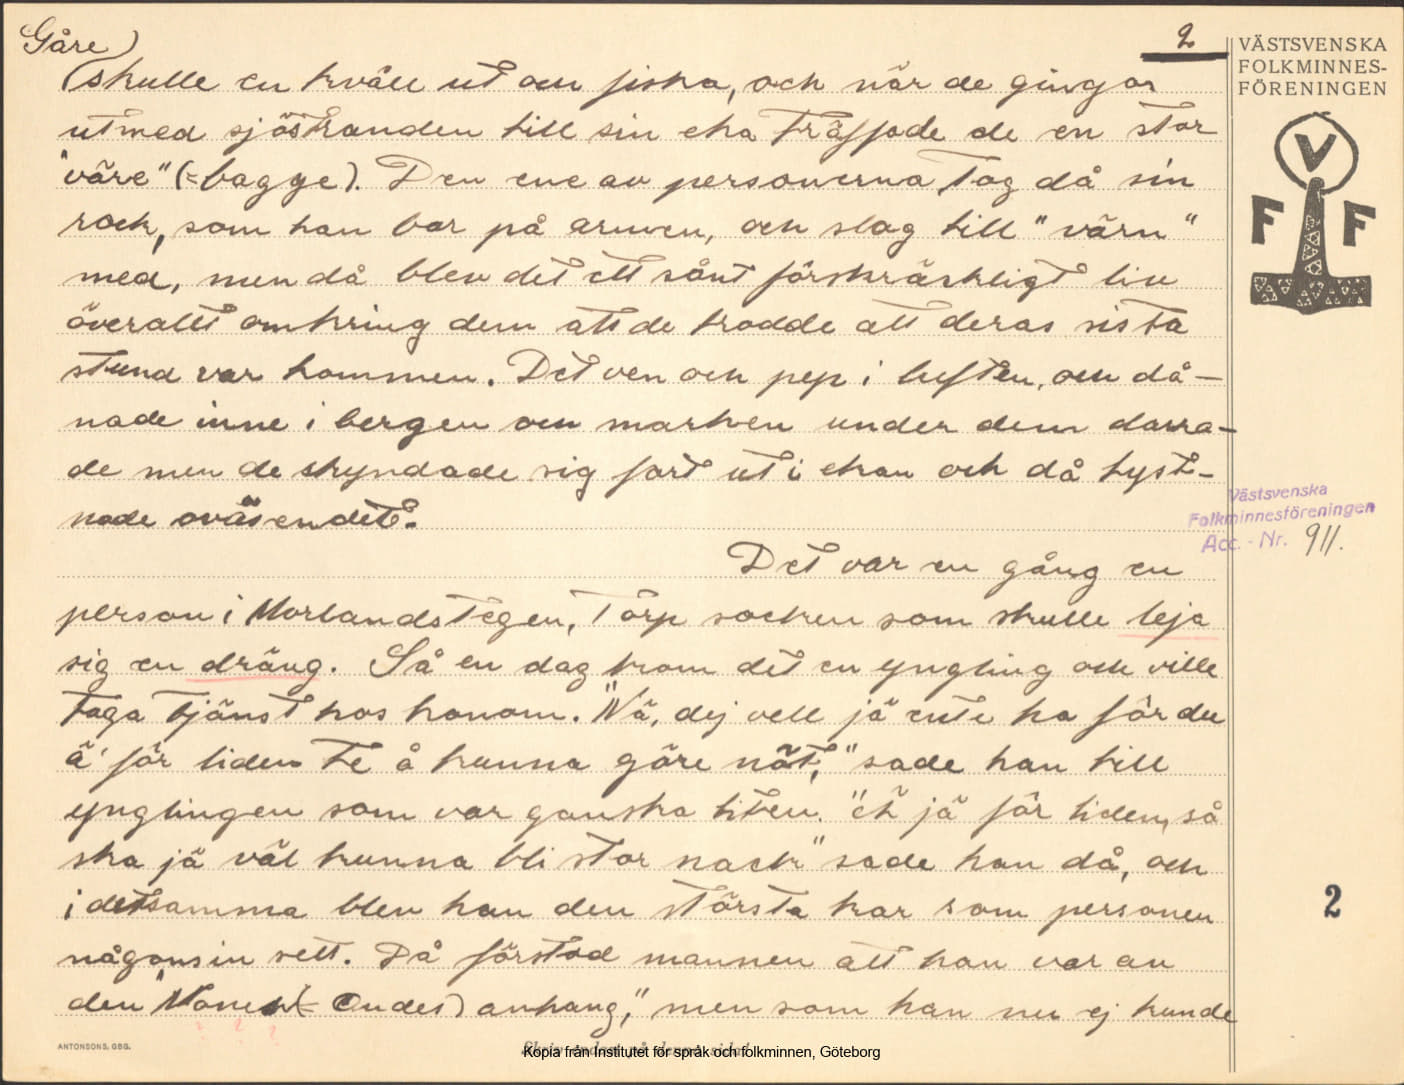 Gåre)
2
VÄSTSVENSKA
FOLKMINNES-
FÖRENINGEN
V
F F
(skulle en kväll ut och fiska, och när de gingor
utmed sjöstranden till sin eka träffade de en stor
"väre" (=bagge). Den ene av personerna tog då sin
rock, som han bar på armen, och slog till "värn"
med, men då blev det ett sånt förskräckligt liv
överallt omkring dem att de trodde att deras sista
stund var kommen. Det ven och pep i luften, och då-
nade inne i bergen och marken under dem darra-
de men de skyndade sig fort ut i ekan och då tyst-
nade oväsendet.
Västsvenska
Folkminnesföreningen
Acc. - Nr. 911.
Det var en gång en
person i Morlandstegen, Torp socken som skulle leja
sig en dräng. Så en dag kom det en yngling och ville
taga tjänst hos honom. "Nä, dej vell jä ente ha för du
ä' för liden te å kunna göre nöt," sade han till
ynglingen som var ganska liten. "Ä jä för liden, så
ska jä väl kunna bli stor nack" sade han då, och
i detsamma blev han den största kar som personen
någonsin sett. Då förstod mannen att han var av
den (= Ondes) anhang," men som han nu ej kunde
2
ANTONSONS, GBG.
Skriv endast på denna sida!
Kopia från Institutet för språk och folkminnen, Göteborg